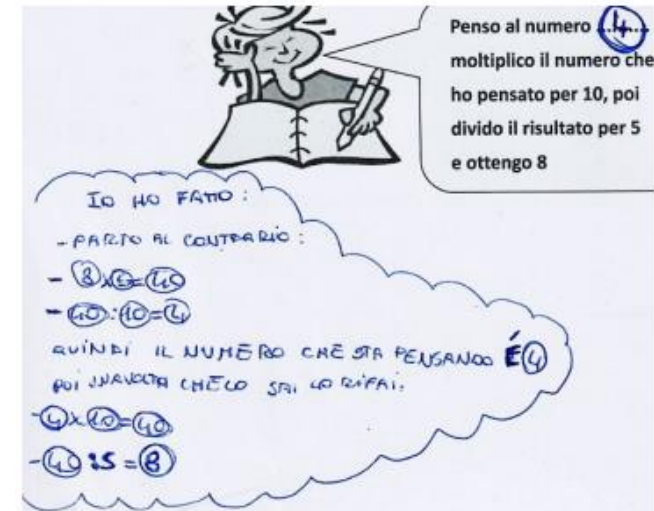 Penso al numero ...4...
moltiplico il numero che
ho pensato per 10, poi
divido il risultato per 5
e ottengo 8
IO HO FATTO:
- PARTO AL CONTRARIO:
- 8x5=40
- 40:10=4
QUINDI IL NUMERO CHE STA PENSANDO É 4
POI UNAVOLTA CHE LO SAI LO RIFAI.
-4x10=40
-40:5=8